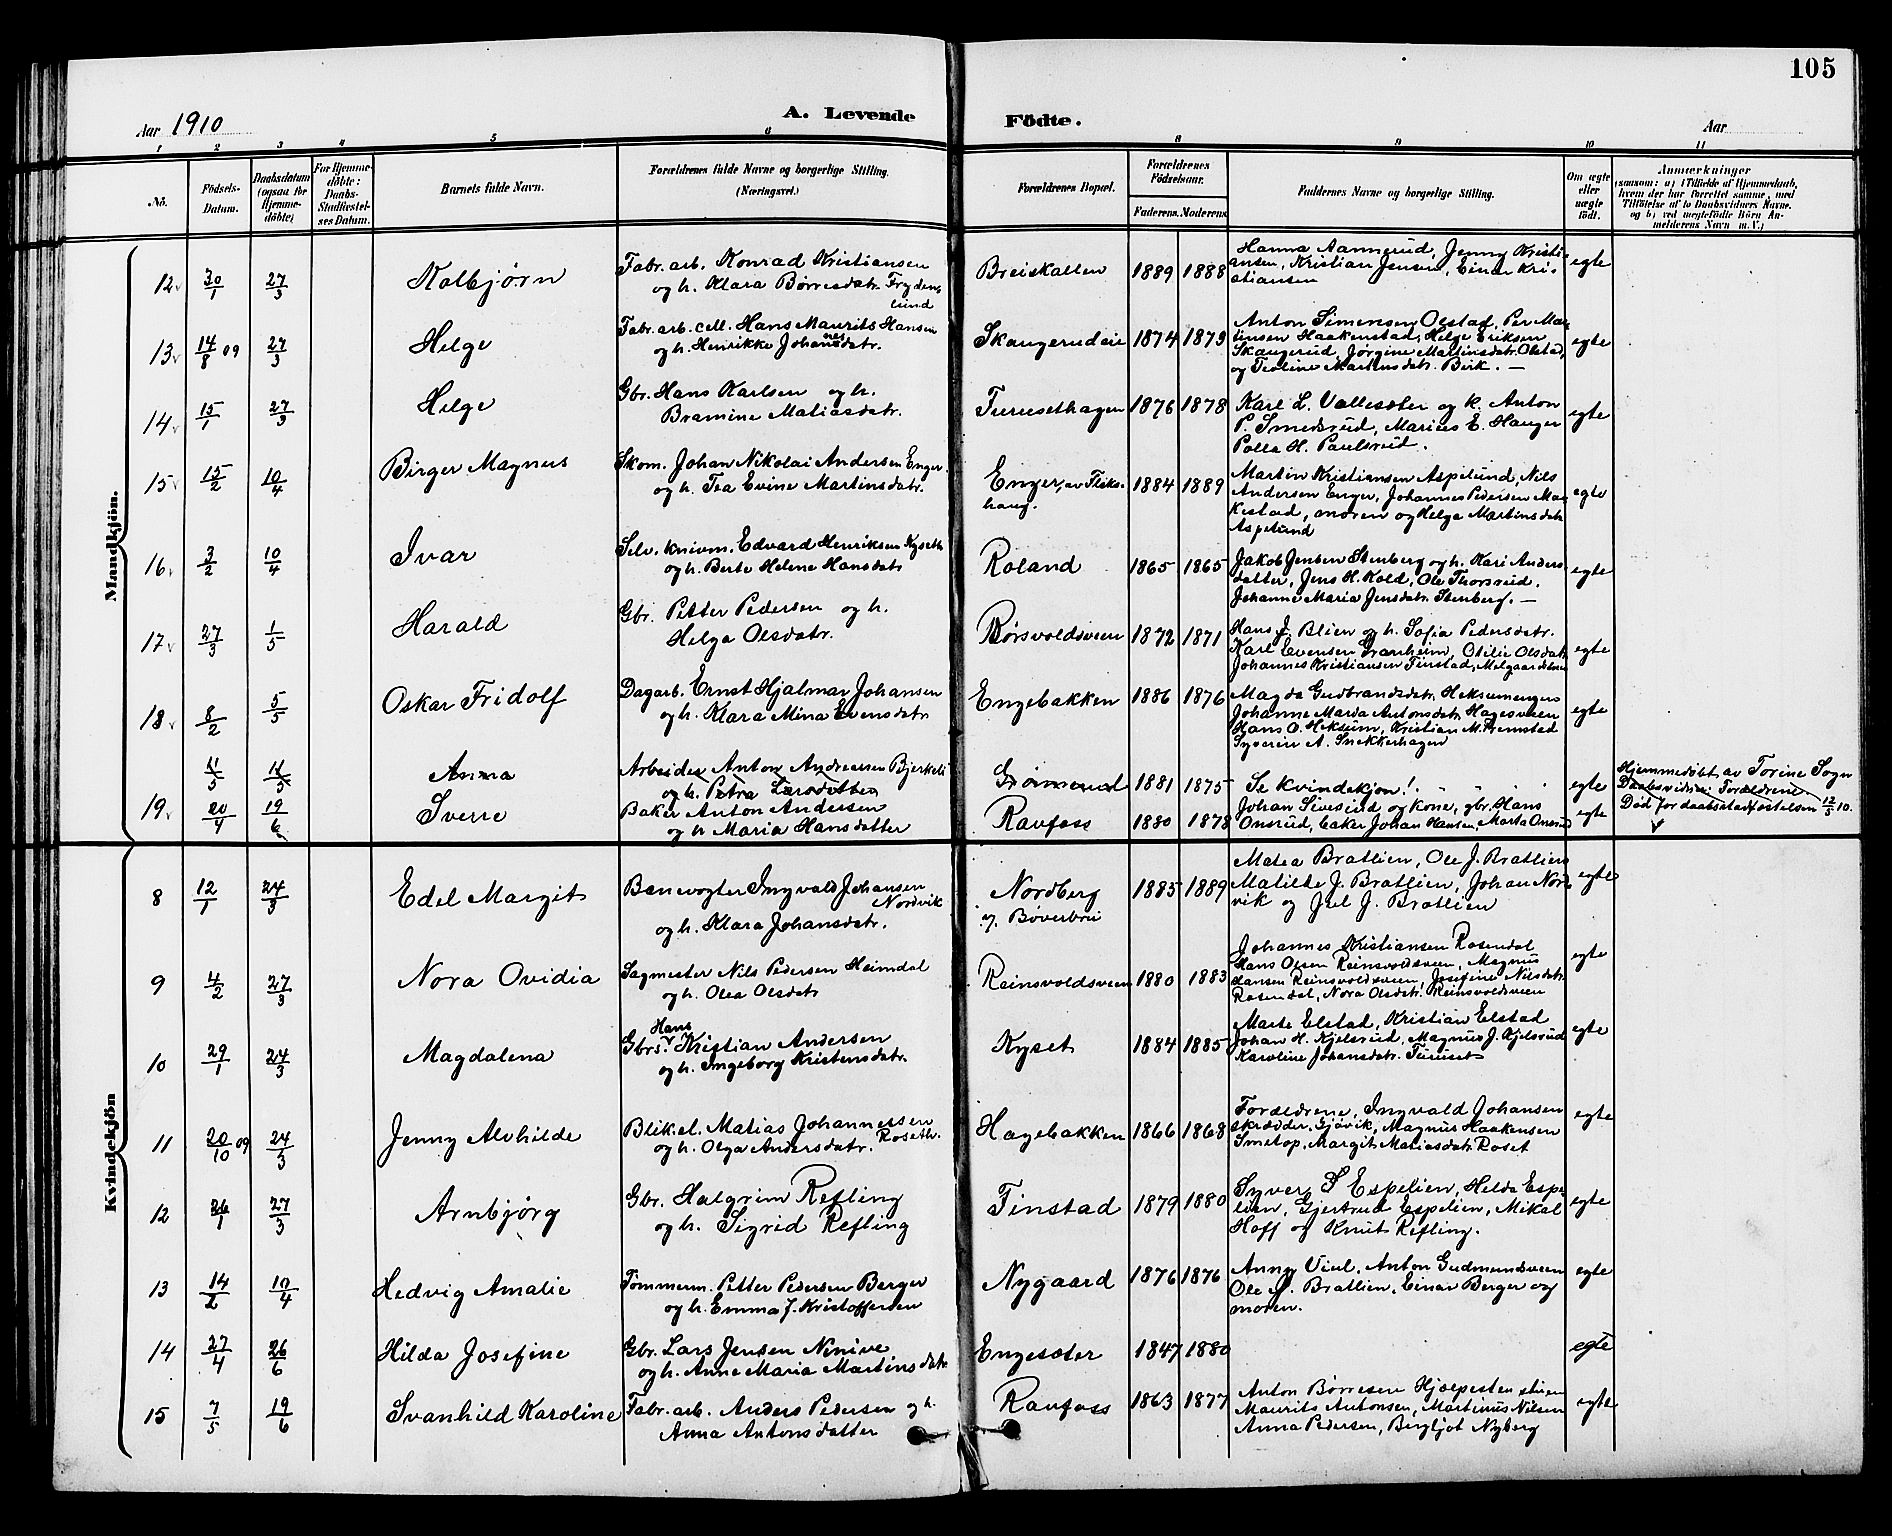 105
Aar 1910
A. Levende
Födte.
Aar
1 2 3 4 5 6 8 9 10 11
No.
Födsels-Datum.
Daabsdatum (ogsaa for Hjemme-döbte)
For Hjemme-döbte: Daabs-Stadfæstel-ses Datum.
Barnets fulde Navn.
Forældrenes fulde Navne og borgerlige Stilling. (Næringsvei.)
Forældrenes Bopæl.
Forældrenes Födselsaar.
Faderens. Moderens.
Faddernes Navne og borgerlige Stilling.
Om ægte eller uægte födt.
Anmærkninger
(saasom: a) i Tilfælde af Hjemmedaab, hvem der har forrettet samme, med Tilföielse af to Daabsvidners Navne. og b) ved uægtefödte Börn An-melderens Navn m. V.)
Mandkjön.
12 30/1 27/3 Kolbjørn
Fabr. arb. Konrad Kristiansen
og h. Klara Børresdatr. Fryden
lund
Breiskallen 1889 1888
Hanna Aannerud, Jenny Kristi
ansen, Kristian Jensen, Einar Kris
stiansen
egte
13 14/8 09 27/3 Helge
Fabr. arb. cell. Hans Maurits Hansen
og h. Henrikke Johannesdatr.
Skangerudeie 1874 1873
Anton Simensen Olstad, Per Mar
tinsen Haakenstad, Helge Eriksen
Skangerud, Jørgine Martinsdatr. Olstad,
og Teoline Martinsdatr. Birk. —
egte
14 15/1 27/3 Helge
Gbr. Hans Karlsen og h.
Bramine Matiasdatr.
Turusethagen 1876 1878
Karl L. Vallesæter og k. Anton
P. Smedsrud, Marius E. Hanger
Polla H. Paulsrud.
egte
15 15/2 10/4 Birger Magnus
Skom. Johan Nikolai Andersen Enger
og h. Tea Evine Martinsdatr.
Enger, av Fliks-
haug.
1884 1889
Martin Kristiansen Aspelund, Nils
Andersen Enger, Johannes Pedersen Mæ
kestad, moren og Helga Martinsdatr
Aspelund
egte
16 3/2 10/4 Ivar
Selv. knivm. Edvard Henriksen Kyseth
og h. Berte Helene Hansdatr
Roland 1865 1865
Jakob Jensen Stenberg og h. Kari Anders
datter, Jens H. Kold, Ole Thorsrud.
Johanne Maria Jensdatr. Stenberg. —
egte
17 27/3 1/5 Harald
Gbr. Petter Pedersen og h.
Helga Olsdatr.
Børsvoldsveen 1872 1871
Hans J. Blien og h. Sofia Pedersdatr.
Karl Evensen Granheim, Otilie Olsdatr
Johannes Kristiansen Finstad, Melgaardsveen
egte
18 8/2 5/5 Oskar Fridolf
Dagarb. Ernst Hjalmar Johansen
og h. Klara Mina Evensdatr
Engebakken 1886 1876
Magda Gudbrandsdatr. Heksumengen
Johanne Maria Antonsdatr. Hagesveen
Hans O. Heksum, Kristian M. Premstad
Syverin A. Snekkerhagen
egte
11/5 11/5 Anna
Arbeider Anton Andreassen Bjerkeli
og h. Petra Larsdatter
Grømund 1881 1875
Se kvindekjøn! " "
egte
Hjemmedøbt av Torine Sogn
Daabsvidner: Forældrene
Død før daabsstadfæstelsen 12/5 10.
19 20/4 19/6 Sverre
Baker Anton Andersen
og h Maria Hansdatter
Raufoss 1880 1878
Johan Sivesind og kone, gbr. Hans
Onsrud, baker Johan Hansen, Marta Onsrud
egte
Kvindekjön
8 12/1 24/3 Edel Margit
Banevogter Ingvald Johansen
Nordvik
og h. Klara Johansdatr.
Nordberg
v. Bøverbru
1885 1889
Matea Bratlien, Ole J. Bratlien
Matilde J. Bratlien, Johan Nord
vik og Juel J. Bratlien
egte
9 4/2 27/3 Nora Ovidia
Sagmester Nils Pedersen Heimdal
og h. Olea Olsdatr
Reinsvoldsveen 1880 1883
Johannes Kristiansen Rosendal
Hans Olsen Reinsvoldsveen, Magnus
Hansen Reinsvoldsveen, Josefine Nilsdatr
Rosendal, Nora Olsdatr. Reinsvoldsveen
egte
10 29/1 24/3 Magdalena
Hans
Gbrs. Kristian Andersen
og h. Ingeborg Kristensdatr.
Kyset 1884 1885
Marte Elstad, Kristian Elstad
Johan H. Kjelsrud, Magnus J. Kjelsrud
Karoline Johansdatr. Turuset
egte
11 20/10 09 24/3 Jenny Alvhilde
Bliksl. Matias Johannessen
Roseth.
og h. Olga Andersdatr.
Hagebakken 1866 1868
Forældrene, Ingvald Johansen
skrædder, Gjøvik, Magnus Haakensen
Smetop, Margit Matiasdatr Roset
egte
12 26/1 27/3 Arnbjørg
Gbr. Halgrim Refling
og h. Sigrid Refling
Finstad 1879 1880
Syver S Espelien, Helda Espe
lien, Gjertrud Espelien, Mikal
Hoff og Knut Refling.
egte
13 14/2 10/4 Hedvig Amalie
Tømmerm. Petter Pedersen Berger
og h. Emma J. Kristoffersen
Nygaard 1876 1876
Anny Viul, Anton Gudmundsveen
Ole J. Bratlien, Einar Berger og
moren.
egte
14 27/4 26/6 Hilda Josefine
Gbr. Lars Jensen Ninive
og h. Anne Maria Martinsdatr
Engesæter 1847 1880
egte
15 7/5 19/6 Svanhild Karoline
Fabr. arb. Anders Pedersen og h.
Anna Antonsdatter
Raufoss 1863 1877
Anton Børresen Hjælpestenstuen
Maurits Antonsen, Martinus Nilsen
Anna Pedersen, Bergljot Nyberg
egte